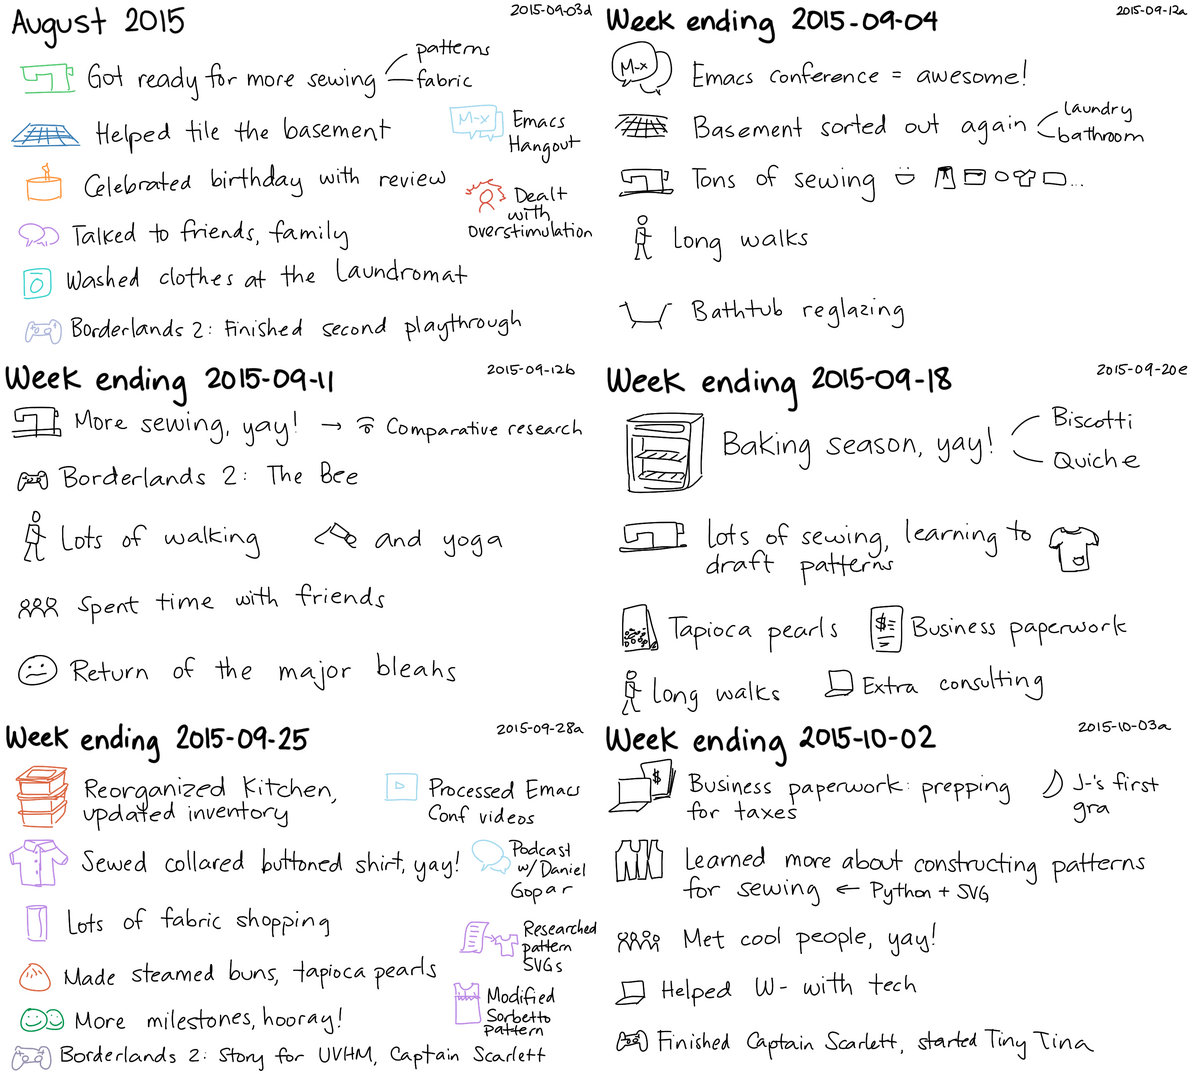 August 2015
2015-09-03d
Got ready for more sewing
patterns
fabric
Helped tile the basement
M-x
Emacs
Hangout
Celebrated birthday with review
Dealt
with
overstimulation
Talked to friends, family
Washed clothes at the Laundromat
Borderlands 2: Finished second playthrough
Week ending 2015-09-04
2015-09-12a
M-x
Emacs conference = awesome!
Basement sorted out again
laundry
bathroom
Tons of sewing
...
Long walks
Bathtub reglazing
Week ending 2015-09-11
2015-09-12b
More sewing, yay! → Comparative research
Borderlands 2: The Bee
Lots of walking
and yoga
Spent time with friends
Return of the major bleahs
Week ending 2015-09-18
2015-09-20e
Baking season, yay!
Biscotti
Quiche
Lots of sewing, learning to
draft patterns
Tapioca pearls
$
Business paperwork
Long walks
Extra consulting
Week ending 2015-09-25
2015-09-28a
Reorganized Kitchen,
updated inventory
Processed Emacs
Conf videos
Sewed collared buttoned shirt, yay!
Podcast
w/Daniel
Gopar
Lots of fabric shopping
Researched
pattern
SVGs
Made steamed buns, tapioca pearls
Modified
Sorbetto
pattern
More milestones, hooray!
Borderlands 2: Story for UVHM, Captain Scarlett
Week ending 2015-10-02
2015-10-03a
$
Business paperwork: prepping
for taxes
J-'s first
gra
Learned more about constructing patterns
for sewing ← Python + SVG
Met cool people, yay!
Helped W- with tech
Finished Captain Scarlett, started Tiny Tina